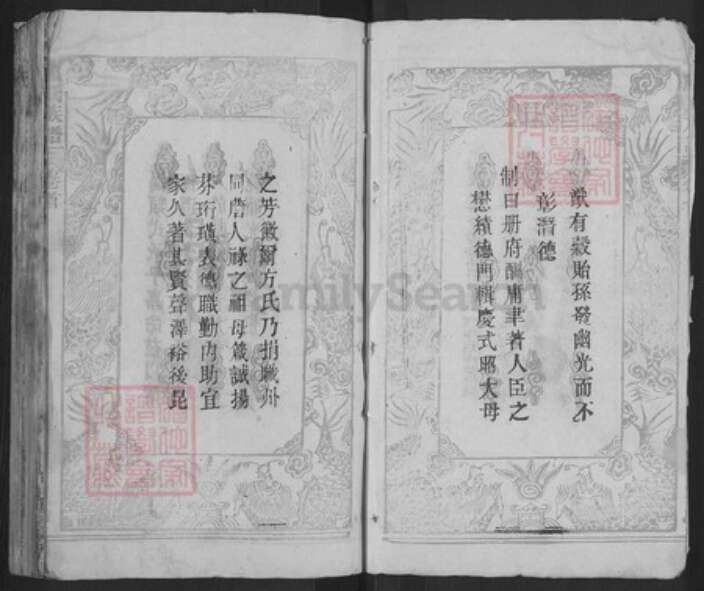 猷有穀貽孫發幽光而不
彰潛德
制曰册府酬庸聿著人臣之
懋績德門輯慶式昭大母
之芳徽爾方氏乃捐職州
同詹人祿之祖母箴誡揚
芬珩璜表德職勤內助宜
家久著其賢聲澤裕後昆
FamilySearch